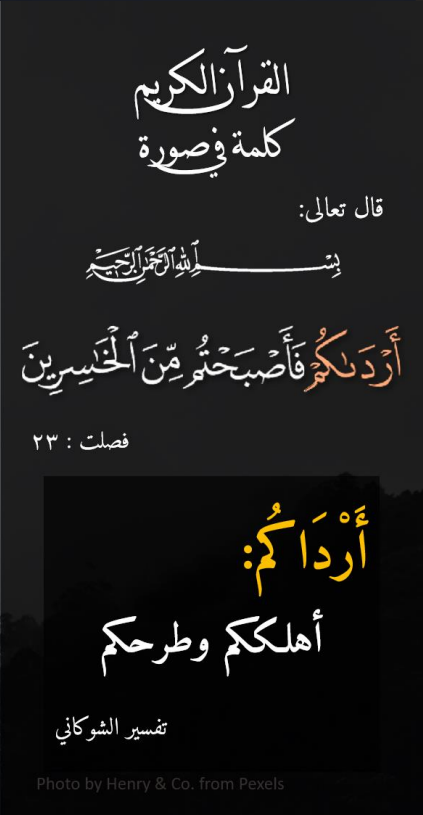 القرآن الكريم
كلمة في صورة
قال تعالى:
بِسْمِ ٱللَّهِ ٱلرَّحْمَٰنِ ٱلرَّحِيمِ
أَرْدَىٰكُمْ فَأَصْبَحْتُم مِّنَ ٱلْخَٰسِرِينَ
فصلت : ٢٣
أَرْدَاكُم:
أهلككم وطرحكم
تفسير الشوكاني
Photo by Henry & Co. from Pexels